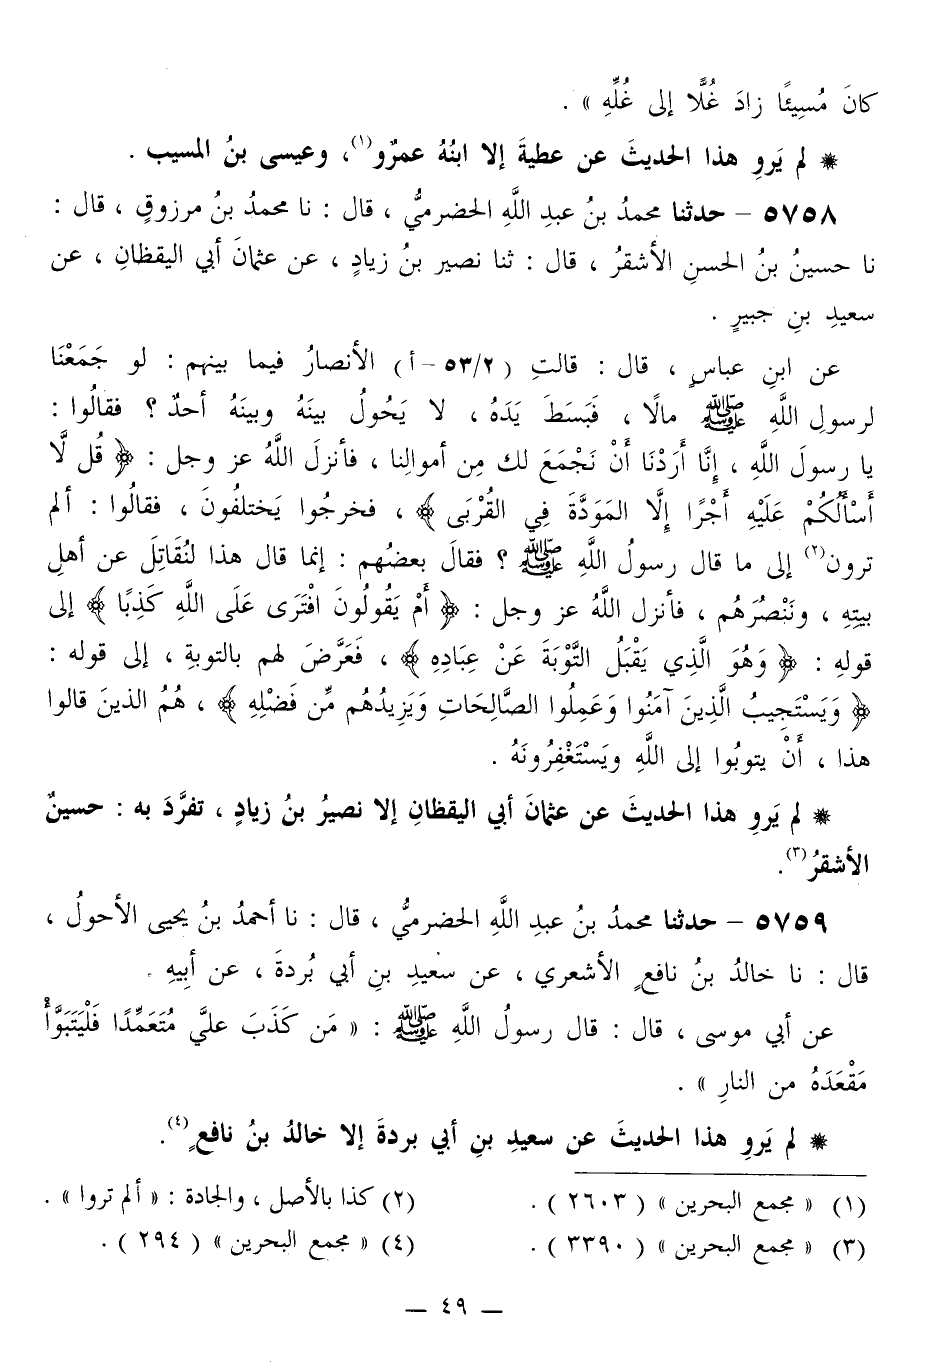 كانَ مُسِيئًا زادَ غُلًّا إلى غُلِّهِ » .
❋ لم يَروِ هذا الحديثَ عن عطيةَ إلا ابنُهُ عمرٌو(١)، وعيسى بنُ المسيب .
٥٧٥٨ – حدثنا محمدُ بنُ عبدِ اللَّهِ الحضرميُّ ، قال : نا محمدُ بنُ مرزوقٍ ، قال :
نا حسينُ بنُ الحسنِ الأشقرُ ، قال : ثنا نصير بنُ زيادٍ ، عن عثمانَ أبي اليقظانِ ، عن
سعيدِ بنِ جبيرٍ .
عن ابنِ عباسٍ ، قال : قالتِ ( ٥٣/٢ – أ ) الأنصارُ فيما بينهم : لو جَمَعْنَا
لرسولِ اللَّهِ ﷺ مالًا ، فَبَسَطَ يَدَهُ ، لا يَحُولُ بينَهُ وبينَهُ أحدٌ ؟ فقالُوا :
يا رسولَ اللَّهِ ، إِنَّا أَرَدْنَا أَنْ نَجْمَعَ لك مِن أموالِنا ، فأنزل اللَّهُ عز وجل : ﴿ قُل لَّا
أَسْأَلُكُمْ عَلَيْهِ أَجْرًا إِلَّا المَوَدَّةَ فِي القُرْبَى ﴾ ، فخرجُوا يَختلفُونَ ، فقالُوا : ألم
ترون(٢) إلى ما قال رسولُ اللَّهِ ﷺ ؟ فقالَ بعضُهم : إنما قال هذا لنُقَاتِلَ عن أهلِ
بيتِهِ ، ونَنْصُرَهُم ، فأنزل اللَّهُ عز وجل : ﴿ أَمْ يَقُولُونَ افْتَرَى عَلَى اللَّهِ كَذِبًا ﴾ إلى
قولِهِ : ﴿ وَهُوَ الَّذِي يَقْبَلُ التَّوْبَةَ عَنْ عِبَادِهِ ﴾ ، فَعَرَّضَ لهم بالتوبةِ ، إلى قوله :
﴿ وَيَسْتَجِيبُ الَّذِينَ آمَنُوا وَعَمِلُوا الصَّالِحَاتِ وَيَزِيدُهُم مِّن فَضْلِهِ ﴾ ، هُمُ الذينَ قالوا
هذا ، أَنْ يتوبُوا إلى اللَّهِ ويَسْتَغْفِرُونَهُ .
❋ لم يَروِ هذا الحديثَ عن عثمانَ أبي اليقظانِ إلا نصيرُ بنُ زيادٍ ، تفرَّدَ به : حسينٌ
الأشقرُ(٣).
٥٧٥٩ – حدثنا محمدُ بنُ عبدِ اللَّهِ الحضرميُّ ، قال : نا أحمدُ بنُ يحيى الأحولُ ،
قال : نا خالدُ بنُ نافعٍ الأشعري ، عن سعيدِ بنِ أبي بُردةَ ، عن أبيهِ .
عن أبي موسى ، قال : قال رسولُ اللَّهِ ﷺ : « مَن كَذَبَ عليَّ مُتَعَمِّدًا فَلْيَتَبَوَّأْ
مَقْعَدَهُ من النارِ » .
❋ لم يَروِ هذا الحديثَ عن سعيدِ بنِ أبي بردةَ إلا خالدُ بنُ نافعٍ(٤).
(١) « مجمع البحرين » ( ٢٦٠٣ ) .
(٢) كذا بالأصل ، والجادة : « ألم تروا » .
(٣) « مجمع البحرين » ( ٣٣٩٠ ) .
(٤) « مجمع البحرين » ( ٢٩٤ ) .
— ٤٩ —